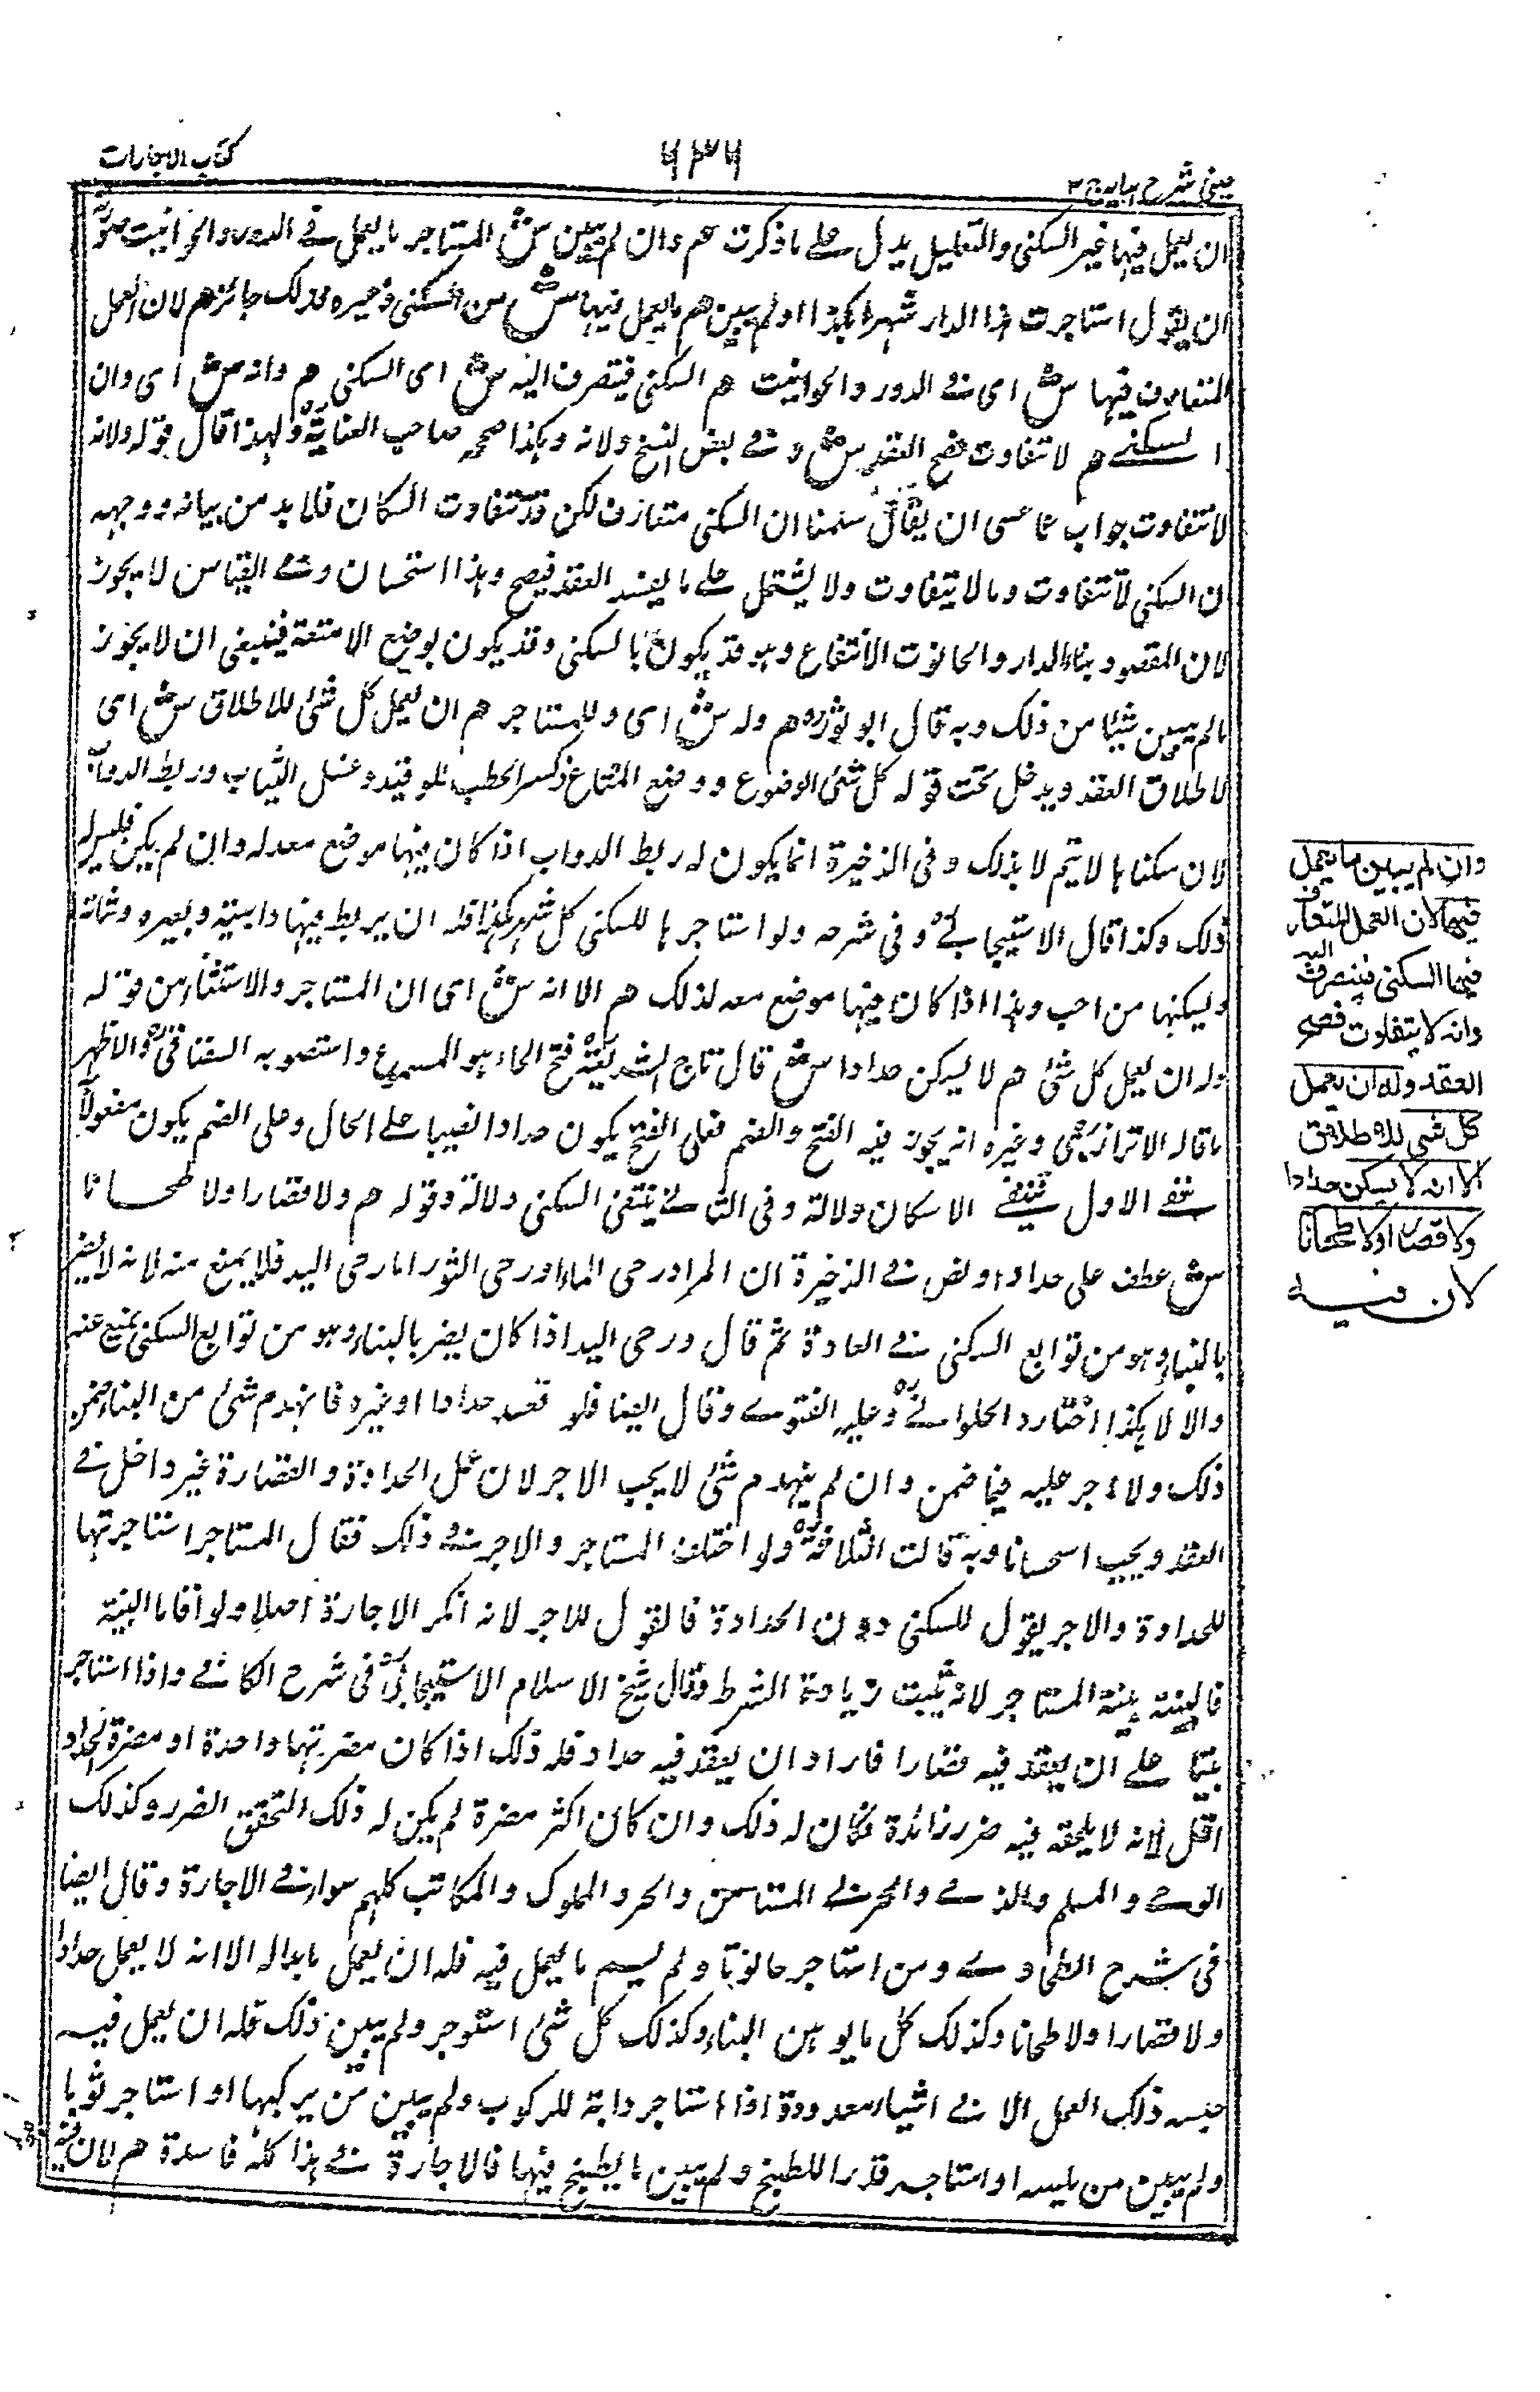 عينى شرح هدايه ج ٣
٦٣٦
كتاب الاجارات
ان يعمل فيها غير السكنى والتعليل يدل على ما ذكرت هم وان لم يبين ش المستاجر ما يعمل فى الدور والحوانيت صورته
ان يقول استاجرت هذا الدار شهرا بكذا ولم يبين هم ما يعمل فيها ش من السكنى وغيره فذلك جائز هم لان العمل
المتعارف فيها ش اى فى الدور والحوانيت هم السكنى فيتصرف اليه ش اى السكنى هم وانه ش اى وان
السكنى هم لا تتفاوت فصح العقد ش وفى بعض النسخ ولانه وهكذا صححه صاحب العناية ولهذا قال قوله ولانه
لا تتفاوت جواب عما عسى ان يقال سلمنا ان السكنى متعارف لكن قد تتفاوت السكان فلا بد من بيانه ووجهه
ان السكنى لا تتفاوت وما لا يتفاوت ولا يشتمل على ما يفسد العقد فيصح وهذا استحسان وفى القياس لا يجوز
لان المقصود بناء الدار والحانوت الانتفاع وهو قد يكون بالسكنى وقد يكون بوضع الامتعة فينبغى ان لا يجوز
ما لم يبين شيئا من ذلك وبه قال ابو ثور هم وله ش اى وللمستاجر هم ان يعمل كل شئ للاطلاق ش اى
لاطلاق العقد ويدخل تحت قوله كل شئ الوضوء ووضع المتاع وكسر الحطب للوقيد وغسل الثياب وربط الدواب
لان سكناها لا يتم الا بذلك وفى الذخيرة انما يكون له ربط الدواب اذا كان فيها موضع معد له وان لم يكن فليس له
ذلك وكذا قال الاسبيجابى وفى شرحه ولو استاجرها للسكنى كل شهر بكذا فله ان يربط فيها دابته وبعيره وشاته
ويسكنها من احب وهذا اذا كان فيها موضع معد لذلك هم الا انه ش اى ان المستاجر والاستثناء من قوله
وله ان يعمل كل شئ هم لا يسكن حدادا ش قال تاج الشريعة فتح الحاء هو المسموع واستصوبه السغناقى والاظهر
ما قاله الاترازى وغيره انه يجوز فيه الفتح والضم فعلى الفتح يكون حدادا نصبا على الحال وعلى الضم يكون مفعولا
ففى الاول ينتفى الاسكان دلالة وفى الثانى ينتفى السكنى دلالة وقوله هم ولا قصارا ولا طحانا
ش عطف على حدادا ونص فى الذخيرة ان المراد رحى الماء ورحى الثور اما رحى اليد فلا يمنع منه لانه لا يضر
بالبناء وهو من توابع السكنى فى العادة ثم قال ورحى اليد اذا كان يضر بالبناء وهو من توابع السكنى يمنع عنه
والا لا هكذا اختاره الحلوانى وعليه الفتوى وقال ايضا فلو قعد حدادا او غيره فانهدم شئ من البناء ضمن
ذلك ولا اجر عليه فيما ضمن وان لم ينهدم شئ لا يجب الاجر لان عمل الحدادة والقصارة غير داخل فى
العقد ويجب استحسانا وبه قالت الثلاثة ولو اختلف المستاجر والاجر فى ذلك فقال المستاجر استاجرتها
للحدادة والاجر يقول للسكنى دون الحدادة فالقول للاجر لانه انكر الاجارة اصلا ولو اقاما البينة
فالبينة بينة المستاجر لانه يثبت زيادة الشرط وقال شيخ الاسلام الاسبيجابى فى شرح الكافى واذا استاجر
بيتا على ان يقعد فيه قصارا فاراد ان يقعد فيه حدادا فله ذلك اذا كان مضرتهما واحدة او مضرة الحداد
اقل لانه لا يلحقه فيه ضرر زائدة فكان له ذلك وان كان اكثر مضرة لم يكن له ذلك لتحقق الضرر وكذلك
الرحى والمسلم والذمى والحربى المستامن والحر والمملوك والمكاتب كلهم سواء فى الاجارة وقال ايضا
فى شرح الطحاوى ومن استاجر حانوتا ولم يسم ما يعمل فيه فله ان يعمل ما بدا له الا انه لا يعمل حدادا
ولا قصارا ولا طحانا وكذلك كل ما يوهن البناء وكذلك كل شئ استوجر ولم يبين ذلك فله ان يعمل فيه
جنس ذلك العمل الا فى اشياء معدودة اذا استاجر دابة للركوب ولم يبين من يركبها او استاجر ثوبا
ولم يبين من يلبسه او استاجر قدرا للطبخ ولم يبين ما يطبخ فيها فالاجارة فى هذا كله فاسدة هم لان فيه
وان لم يبين ما يعمل
فيها لان العمل المتعارف
فيها السكنى فينصرف اليه
وانه لا يتفاوت فصح
العقد وله ان يعمل
كل شى للاطلاق
الا انه لا يسكن حدادا
ولا قصارا ولا طحانا
لان فيه